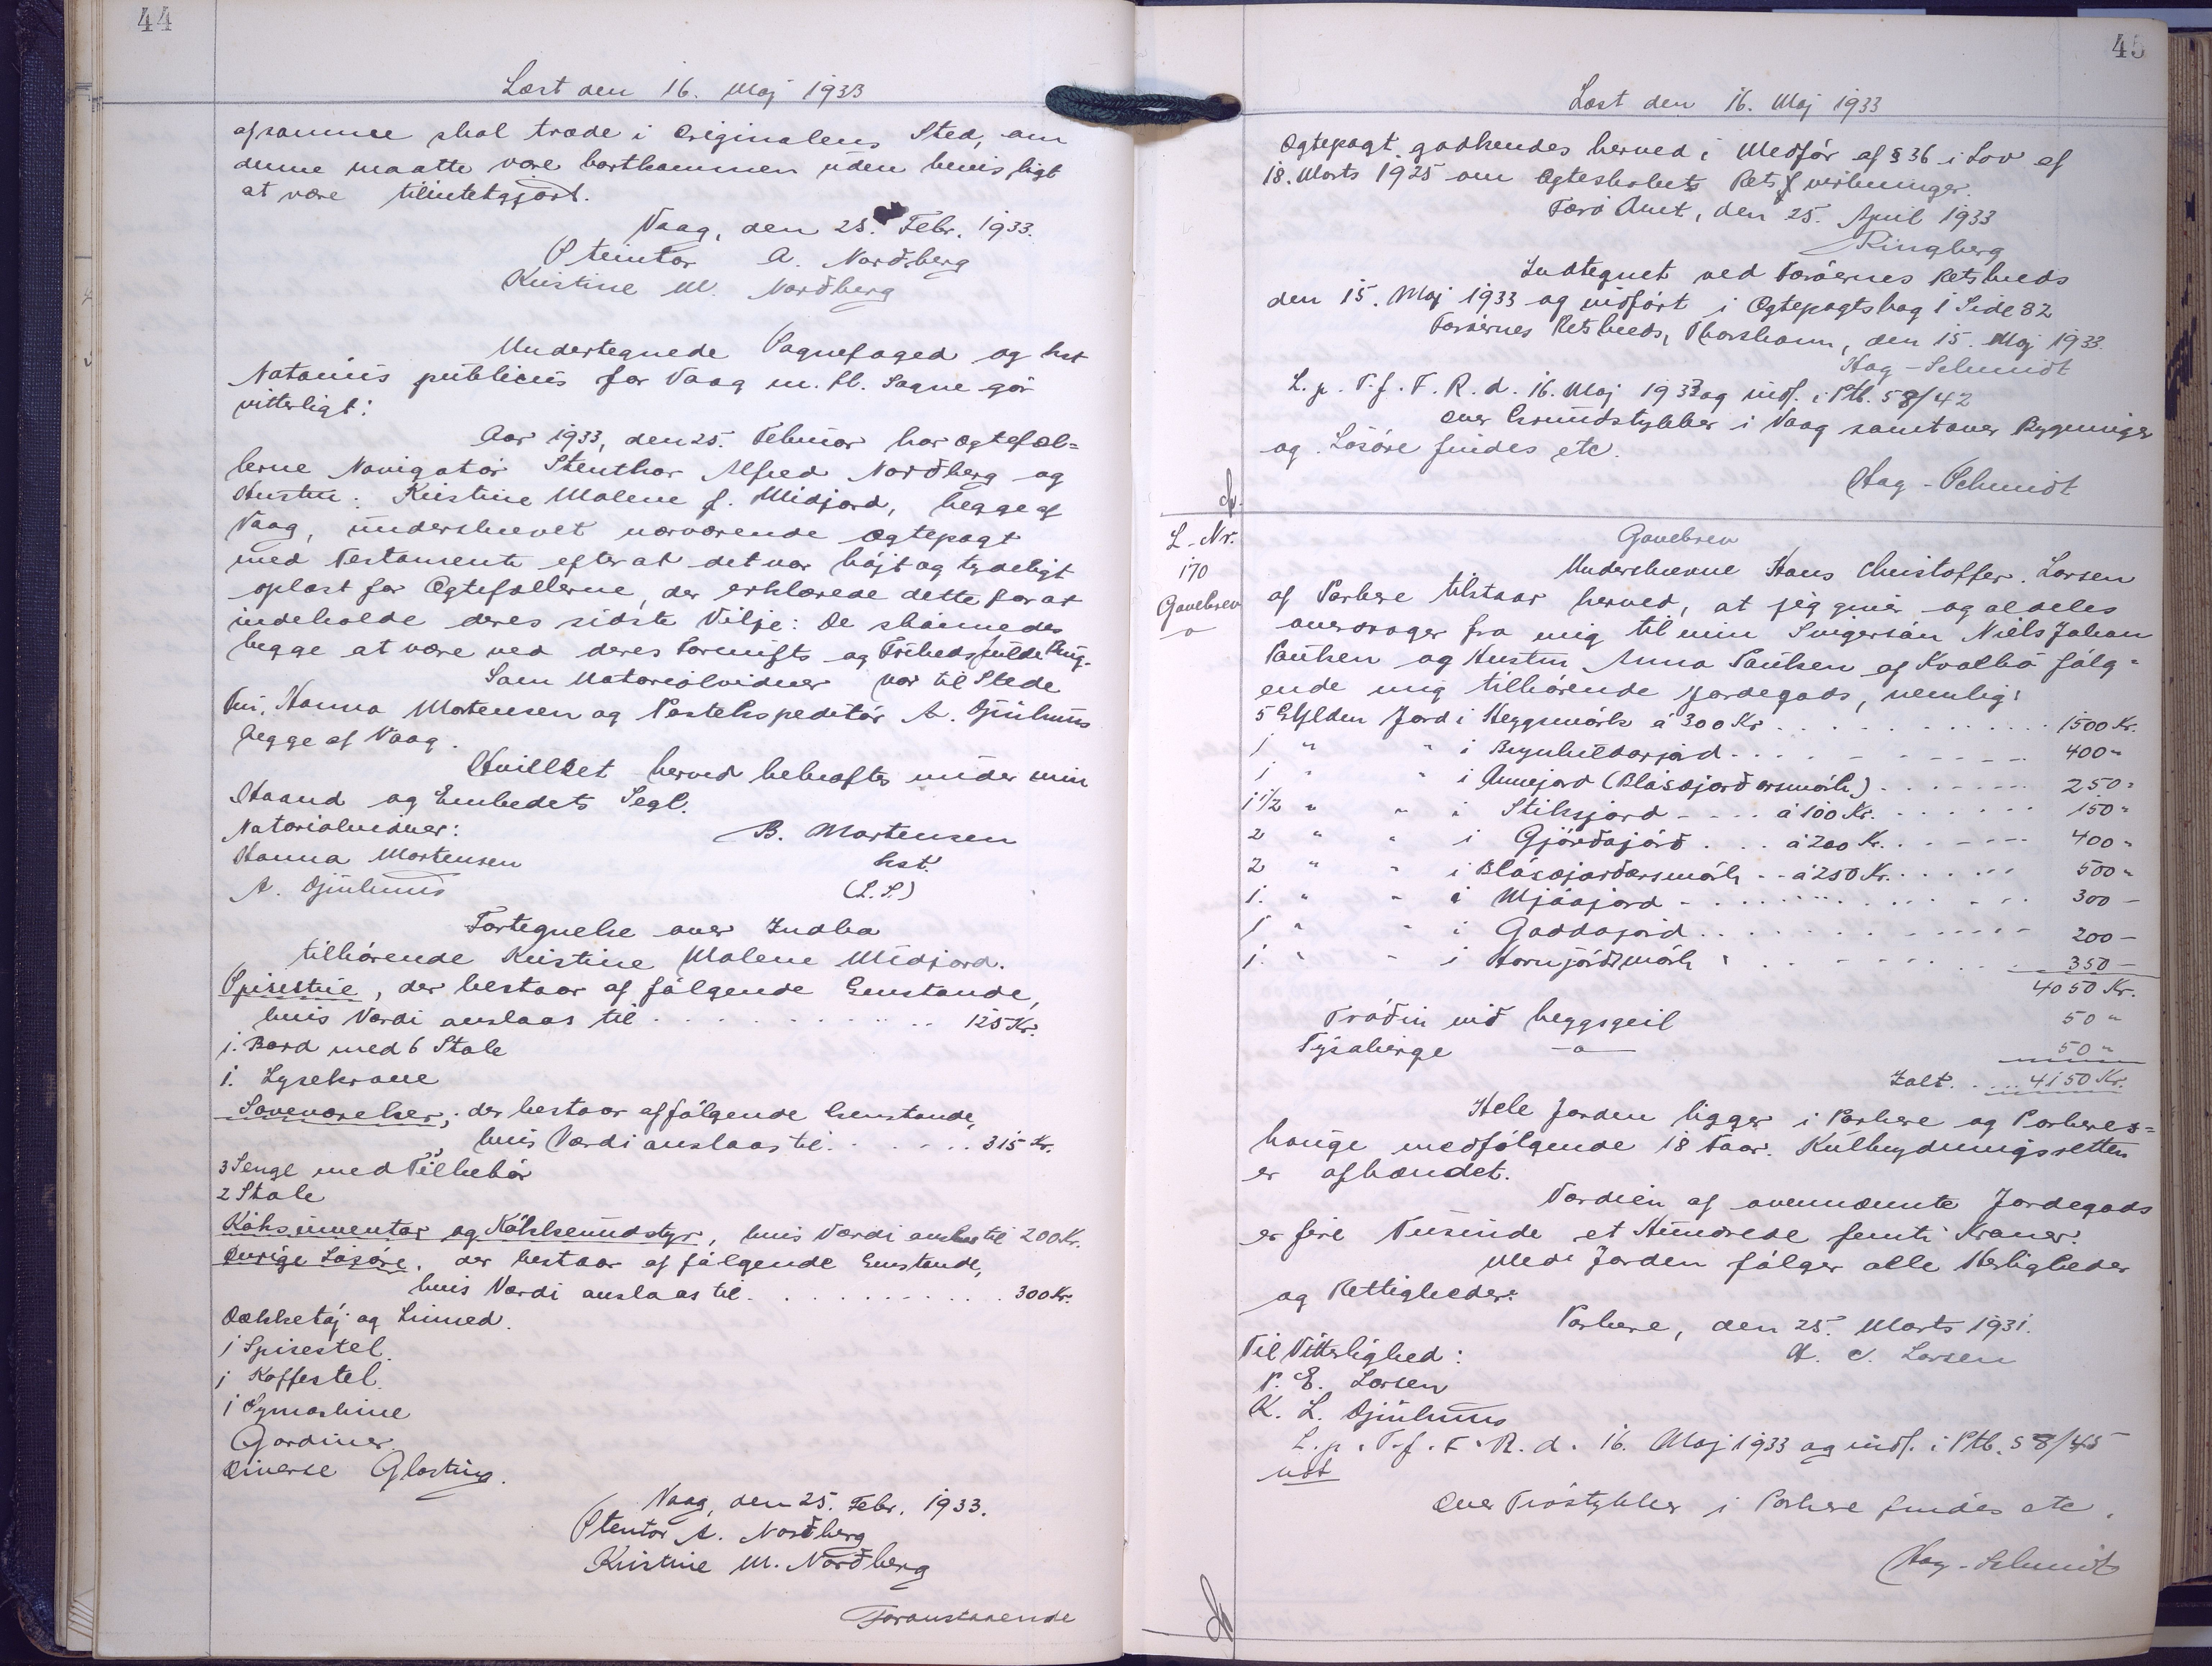 44
Læst den 16. Maj 1933
af samme skal træde i Originalens Sted, om
denne maatte være bortkommen uden bevisligt
at være tilintetgjort.
Vaag, den 25. Febr. 1933.
Steintor A. Norðberg
Kristine M. Norðberg
Undertegnede Sognefoged og kst
Notarius publicus for Vaag m. fl. Sogne gör
vitterligt:
Aar 1933, den 25. Februar har Ægtefæl-
lerne Navigatör Stenthor Alfred Norðberg og
Hustru: Kristine Malene f. Midjord, begge af
Vaag, underskrevet nærværende Ægtepagt
med Testamente efter at det var höjt og tydeligt
oplæst for Ægtefællerne, der erklærede dette for at
indeholde deres sidste Vilje: De skönnedes
begge at være ved deres Fornufts og Friheds fulde Brug.
Som Notarialvidner var til Stede
Fru. Hanna Mortensen og Postekspeditör A. Djurhuus
begge af Vaag.
Hvilket herved bekræftes under min
Haand og Embedets Segl.
Notarialvidner: B. Mortensen
Hanna Mortensen kst.
A. Djurhuus (L.S.)
Fortegnelse over Indbo
tilhörende Kristine Malene Midjord.
Spisestue, der bestaar af fölgende Genstande,
hvis Værdi anslaas til . . . . . . . . 125 Kr.
1. Bord med 6 Stole
1. Lysekrone
Soveværelser, der bestaar af fölgende Genstande,
hvis Værdi anslaas til . . . . . . 315 Kr.
3 Senge med Tilbehör
2 Stole
Köksinventar og Kökkenudstyr, hvis Værdi anslaas til 200 Kr.
Övrige Lösöre, der bestaar af fölgende Genstande,
hvis Værdi anslaas til . . . . . . . . . 300 Kr.
Dækketöj og Linned.
1 Spisestel.
1 Kaffestel.
1 Symaskine
Gardiner.
Diverse Glasting.
Vaag, den 25. Febr. 1933.
Stentor A. Norðberg
Kristine M. Norðberg
Foranstaaende
45
Læst den 16. Maj 1933
Ægtepagt godkendes herved i Medför af § 36 i Lov af
18. Marts 1925 om Ægteskabets Retsvirkninger.
Færö Amt, den 25. April 1933
Ringberg
Indtegnet ved Færöernes Retskreds
den 15. Maj 1933 og indfört i Ægtepagtsbog 1 Side 82
Færöernes Retskreds, Thorshavn, den 15. Maj 1933
Hag-Schmidt
L. p. T. f. F. R. d. 16. Maj 1933 og indf. i Ptb. S 8/42
Over Grundstykker i Vaag samt over Bygninger
og Lösöre findes etc.
Hag-Schmidt
L-Nr.
170
Gavebrev
Gavebrev
Underskrevne Hans Christoffer Larsen
af Porkere tilstaar herved, at jeg giver og aldeles
overdrager fra mig til min Svigersön Niels Johan
Poulsen og Hustru Anna Poulsen af Kvalbö fölg-
ende mig tilhörende Jordegods, nemlig:
5 Gylden Jord i Heggsmörk á 300 Kr. . . . 1500 Kr.
1 " " i Brynhildarjörd . . . 400 "
1 " " i Annejord (Bláscjordarsmörk) . . . 250 "
1 1/2 " " i Stiksjord . . . á 100 Kr. . . . 150 "
2 " " i Gjörðajörð . . . á 200 Kr. . . . 400 "
2 " " i Bláscjarðarsmörk . . á 250 Kr. . . . 500 "
1. " " i Mjóajord . . . 300 —
1 " " i Gaddajord . . . 200 —
1. " " i Hornjörðsmörk . . . 350 —
4050 Kr.
Tröðin við heggsgeil 50 "
Tysaberge —o— 50 "
Ialt. . . . 4150 Kr.
Hele Jorden ligger i Porkere og Porkeres-
hauge medfölgende 18 Faar. Kulbrydningsretten
er afhændet.
Værdien af ovennævnte Jordegods
er fire Tusinde et Hundrede femti Kroner.
Med Jorden fölger alle Herligheder
og Rettigheder.
Porkere, den 25. Marts 1931.
Til Vitterlighed: H. C. Larsen
P. E. Larsen
K. L. Djurhuus
L. p. T. f. F. R. d. 16. Maj 1933 og indf. i Ptb. S 8/45
udt
Over Tröstykker i Porkere findes etc.
Hag-Schmidt